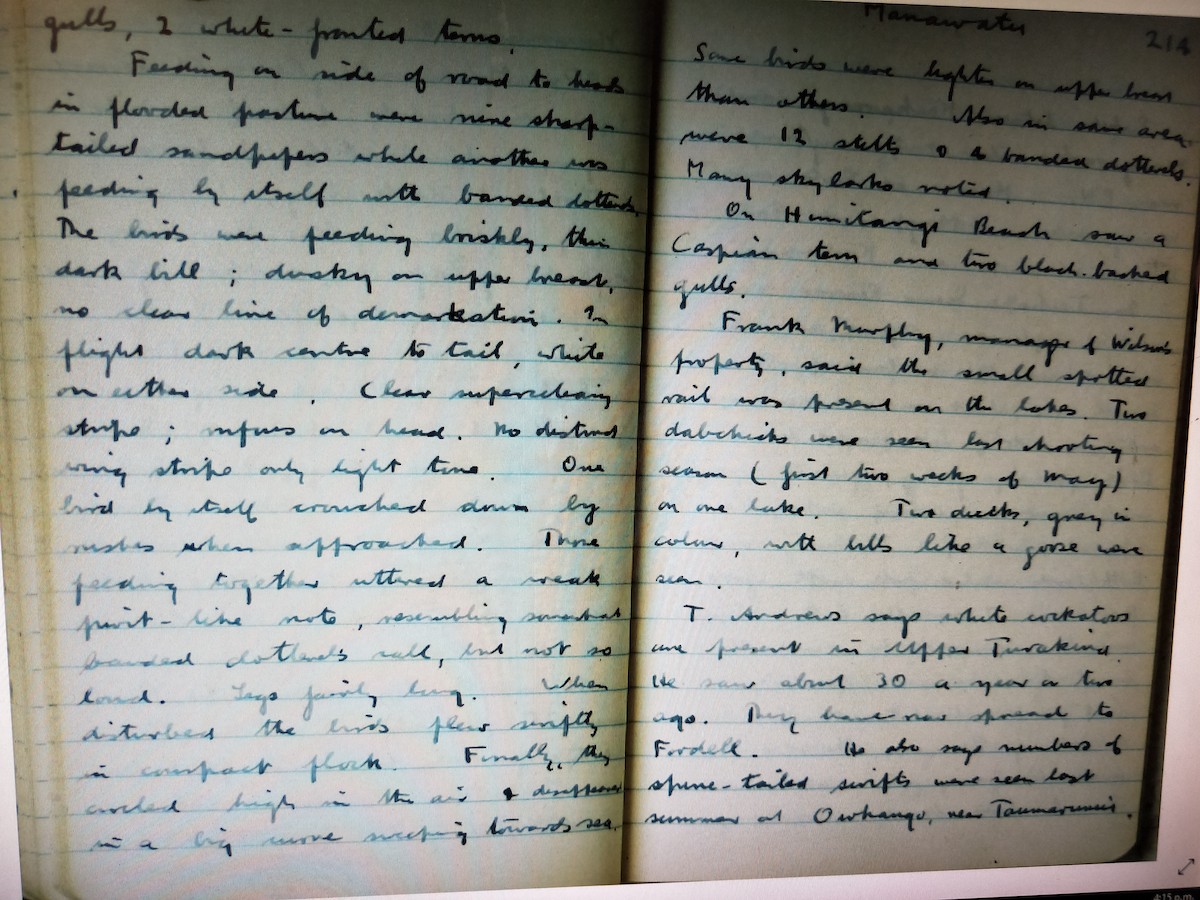 gulls, 2 white-fronted terns.
Feeding on side of road to heads
in flooded pasture were nine sharp-
tailed sandpipers while another was
feeding by itself with banded dotterels.
The birds were feeding briskly, thin
dark bill; dusky on upper breast,
no clear line of demarkation. In
flight dark centre to tail, white
on either side. Clear superciliary
stripe; rufous on head. No distinct
wing stripe only light tone. One
bird by itself crouched down by
rushes when approached. Those
feeding together uttered a weak
pivit-like note, resembling somewhat
banded dotterel's call, but not so
loud. Legs fairly long. When
disturbed the birds flew swiftly
in compact flock. Finally, they
circled high in the air & disappeared
in a big curve sweeping towards sea.
Manawatu
214
Some birds were lighter on upper breast
than others. Also in same area
were 12 stilts & banded dotterels.
Many skylarks noted.
On Himitangi Beach saw a
Caspian tern and two black-backed
gulls.
Frank Murphy, manager of Wilson's
property, said the small spotted
rail was present on the lakes. Two
dabchicks were seen last shooting
season (first two weeks of May)
on one lake. Two ducks, grey in
colour, with bills like a goose were
seen.
T. Andrews says white cockatoos
are present in Upper Turakina.
He saw about 30 a year or two
ago. They have now spread to
Fordell. He also says numbers of
spine-tailed swifts were seen last
summer at Owhango, near Taumarunui.
4:15 p.m.